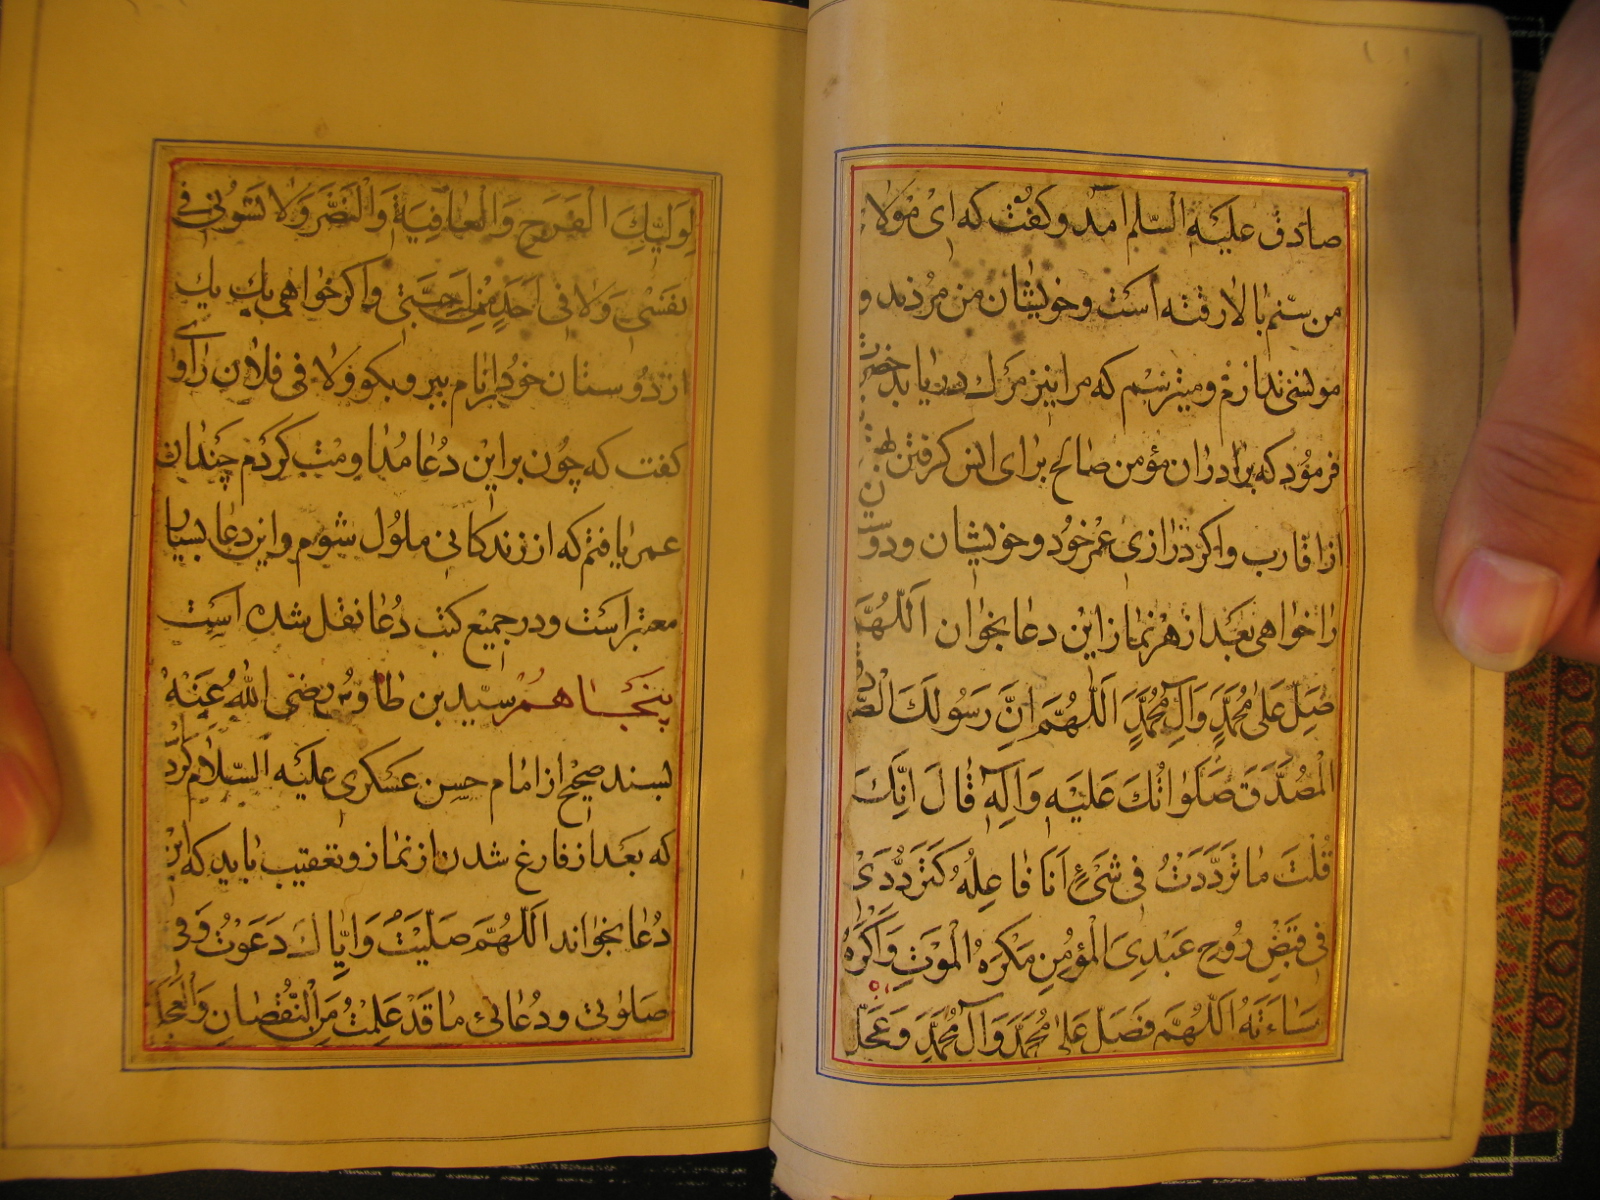 صادق علیه السلم آمد و کفت که ای مولاء
من سنم بالا رفته است و خویشان من مردند و
مونسی ندارم و میترسم که مرا نیز مرک دریابد حضرت
فرمود که برادران مؤمن صالح برای انس کرفتن بهترن
از اقارب و اکر درازی عمر خود و خویشان و دوستا
را خواهی بعد از هر نماز این دعا بخوان اَللّهُمَّ
صَلِّ عَلی مُحَمَّدٍ وَآلِ مُحَمَّدٍ اَللّهُمَّ اِنَّ رَسُولَكَ الصّادِقَ
الْمُصَدَّقَ صَلَوٰاتُكَ عَلَیْهِ وَآلِهِ قٰالَ اِنَّكَ
قُلْتَ مٰا تَرَدَّدْتُ فی شَیْءٍ اَنَا فٰاعِلُهُ کَتَرَدُّدی
فی قَبْضِ رُوحِ عَبْدِیَ الْمُؤْمِنِ یَکْرَهُ الْمَوْتَ وَاَکْرَهُ
مَسٰاءَتَهُ اَللّهُمَّ فَصَلِّ عَلیٰ مُحَمَّدٍ وَآلِ مُحَمَّدٍ وَعَجِّلْ
لِوَلِیِّكَ الْفَرَجَ وَالْعٰافِیَةَ وَالنَّصْرَ وَلا تَسُؤْنی فی
نَفْسی وَلا فی اَحَدٍ مِنْ اَحِبَّتی و اکر خواهی یك یك
از دوستان خود را نام ببر و بکو وَلا فی فلان راوی
کفت که چون بر این دعا مداومت کردم چندان
عمر یافتم که از زندکانی ملول شوم و این دعا بسیار
معتبر است و در جمیع کتب دعا نقل شده است
پنجاهم سیّد بن طاوس رضی الله عنه
بسند صحیح از امام حسن عسکری علیه السلام
که بعد از فارغ شدن از نماز و تعقیب باید که این
دعا بخواند اَللّهُمَّ صَلَّیْتُ وَاِیّٰاكَ دَعَوْتُ وَفی
صَلوٰتی وَدُعٰائی مٰا قَدْ عَلِمْتَ مِنَ النُّقْصٰانِ وَالْعَجَلَ